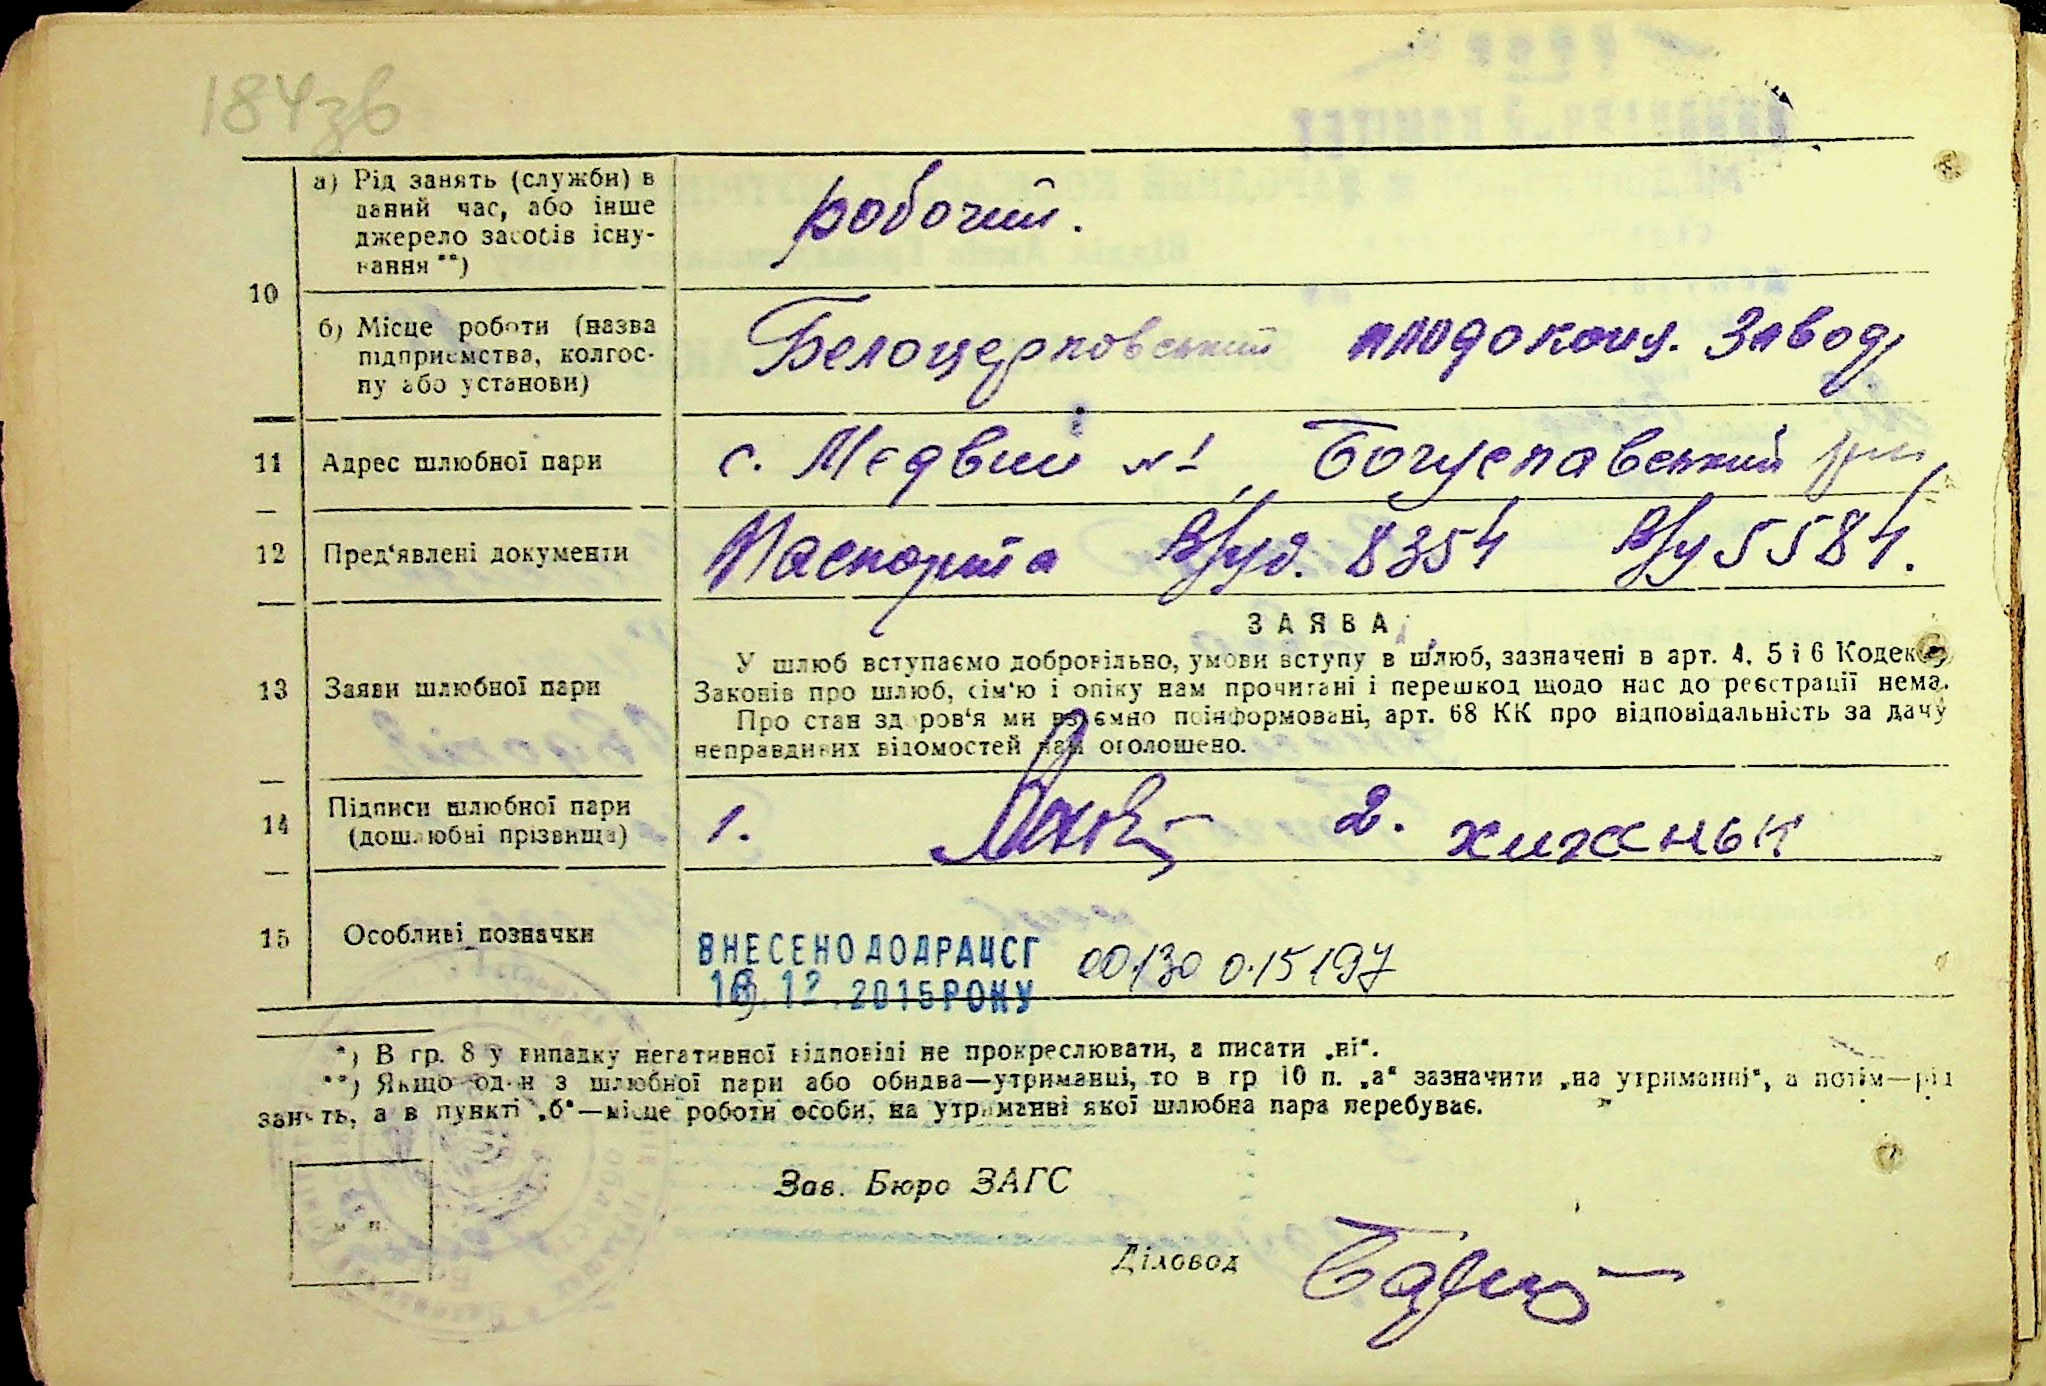 184зв
10
а) Рід занять (служби) в
даний час, або інше
джерело засобів існу-
вання **)
робочий.
б) Місце роботи (назва
підприємства, колгос-
пу або установи)
Белоцерковський плодоконц. завод
11 Адрес шлюбної пари
с. Медвин №1 Богуславський
12 Пред'явлені документи
Паспорта 8354 5584.
13 Заяви шлюбної пари
ЗАЯВА
У шлюб вступаємо добровільно, умови вступу в шлюб, зазначені в арт. 4, 5 і 6 Кодексу
Законів про шлюб, сім'ю і опіку нам прочитані і перешкод щодо нас до реєстрації нема.
Про стан здоров'я ми взаємно поінформовані, арт. 68 КК про відповідальність за дачу
неправдивих відомостей нам оголошено.
14 Підписи шлюбної пари
(дошлюбні прізвища)
1. 2. хижньк
15 Особливі позначки
ВНЕСЕНО ДО ДРАЦСГ
12.2015 РОКУ
00130 015197
*) В гр. 8 у випадку негативної відповіді не прокреслювати, а писати „ні“.
**) Якщо один з шлюбної пари або обидва—утриманці, то в гр 10 п. „а“ зазначити „на утриманні“, а потім—рід
занять, а в пункті „б“—місце роботи особи, на утриманні якої шлюбна пара перебуває.
Зав. Бюро ЗАГС
м п.
Діловод